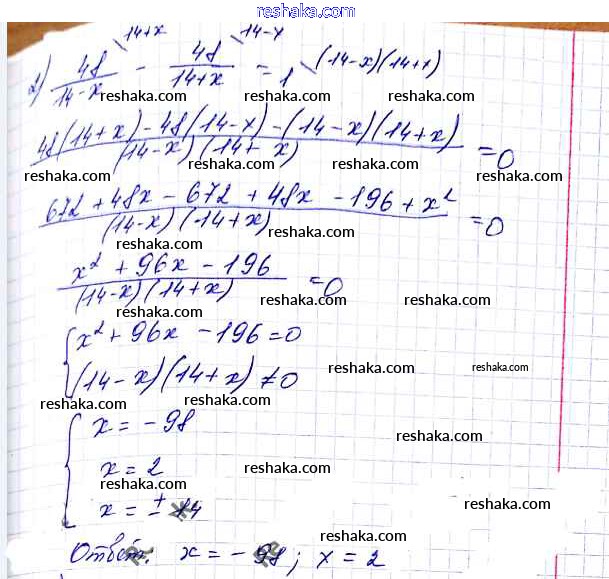 reshaka.com
14+x 14-x
2) 48/(14-x) - 48/(14+x) = 1 (14-x)(14+x)
reshaka.com reshaka.com reshaka.com
48(14+x) - 48(14-x) - (14-x)(14+x) / (14-x)(14+x) = 0
reshaka.com reshaka.com reshaka.com
672 + 48x - 672 + 48x - 196 + x² / (14-x)(14+x) = 0
reshaka.com reshaka.com
reshaka.com
x² + 96x - 196 / (14-x)(14+x) = 0
reshaka.com reshaka.com
reshaka.com
x² + 96x - 196 = 0
reshaka.com
(14-x)(14+x) ≠ 0
reshaka.com reshaka.com
reshaka.com reshaka.com
x = -98
reshaka.com
x = 2
reshaka.com
x = ± 14
reshaka.com reshaka.com
reshaka.com
Ответ: x = -98; x = 2